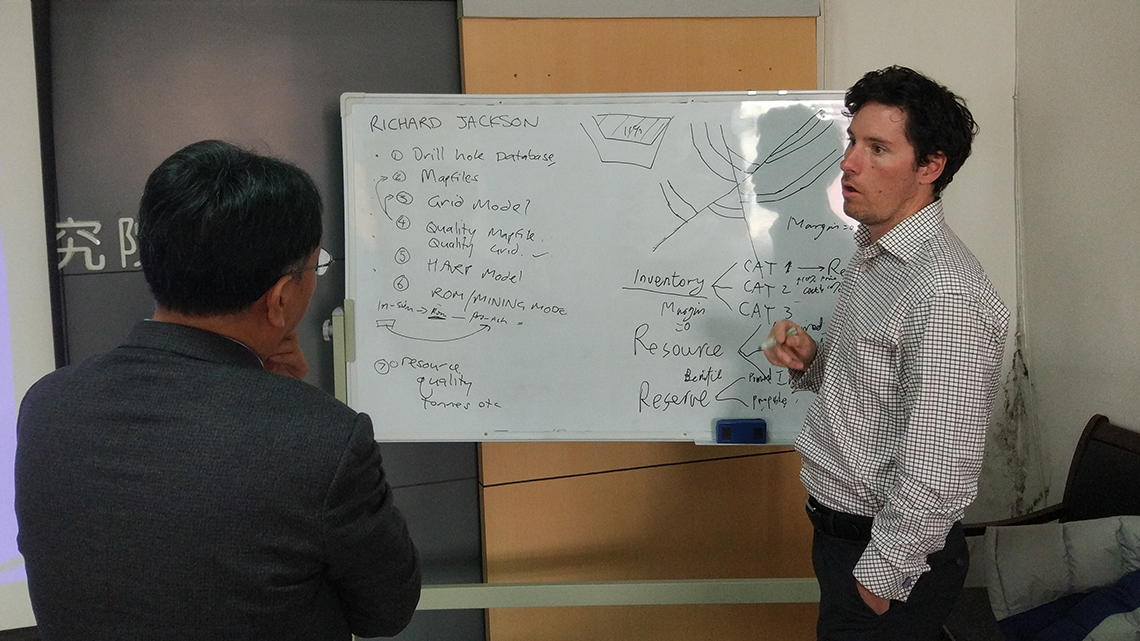 究院
RICHARD JACKSON
① Drill hole Database
② Mapfiles
③ Grid Model
④ Quality Mapfile.
Quality Grid.
⑤ HARP Model
⑥ ROM/MINING MODE
In-situ → Rom —
⑦ resource
quality
Tonnes etc
Margin
Inventory
CAT 1 → Re
CAT 2
CAT 3
Margin
≥0
Resource
Reserve